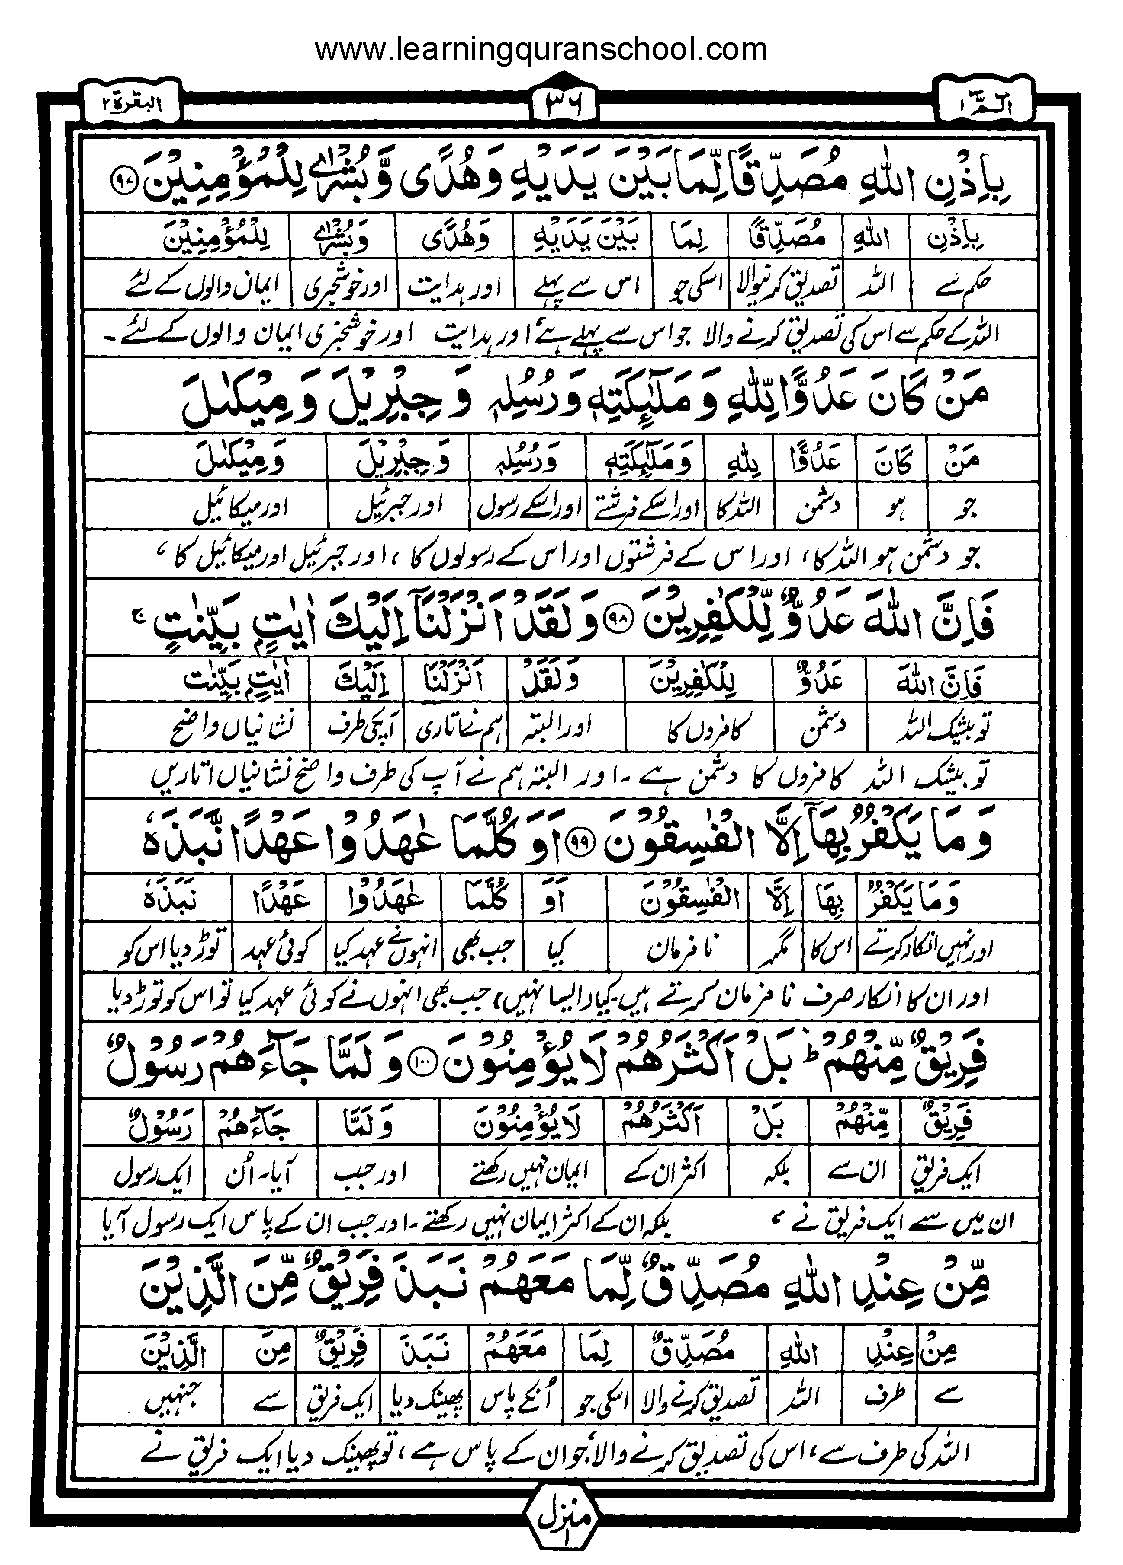 www.learningquranschool.com
الٓمّٓ ١ ٣٦ البقرة ٢
بِاِذْنِ اللّٰهِ مُصَدِّقًا لِّمَا بَيْنَ يَدَيْهِ وَهُدًى وَّبُشْرٰى لِلْمُؤْمِنِيْنَ ﴿٩٧﴾
بِاِذْنِ اللّٰهِ مُصَدِّقًا لِمَا بَيْنَ يَدَيْهِ وَهُدًى وَبُشْرٰى لِلْمُؤْمِنِيْنَ
حکم سے اللہ تصدیق کرنیوالا اسکی جو اس سے پہلے اور ہدایت اور خوشخبری ایمان والوں کے لئے
اللہ کے حکم سے اس کی تصدیق کرنے والا جو اس سے پہلے ہے اور ہدایت اور خوشخبری ایمان والوں کے لئے۔
مَنْ كَانَ عَدُوًّا لِّلّٰهِ وَمَلٰٓئِكَتِهٖ وَرُسُلِهٖ وَجِبْرِيْلَ وَمِيْكٰىلَ
مَنْ كَانَ عَدُوًّا لِلّٰهِ وَمَلٰٓئِكَتِهٖ وَرُسُلِهٖ وَجِبْرِيْلَ وَمِيْكٰىلَ
جو ہو دشمن اللہ کا اور اسکے فرشتے اور اسکے رسول اور جبرئیل اور میکائیل
جو دشمن ہو اللہ کا، اور اس کے فرشتوں اور اس کے رسولوں کا، اور جبرئیل اور میکائیل کا،
فَاِنَّ اللّٰهَ عَدُوٌّ لِّلْكٰفِرِيْنَ ﴿٩٨﴾ وَلَقَدْ اَنْزَلْنَآ اِلَيْكَ اٰيٰتٍۭ بَيِّنٰتٍ ۚ
فَاِنَّ اللّٰهَ عَدُوٌّ لِلْكٰفِرِيْنَ وَلَقَدْ اَنْزَلْنَا اِلَيْكَ اٰيٰتٍۭ بَيِّنٰت
تو بیشک اللہ دشمن کافروں کا اور البتہ ہم نے اتاری آپکی طرف نشانیاں واضح
تو بیشک اللہ کافروں کا دشمن ہے۔ اور البتہ ہم نے آپ کی طرف واضح نشانیاں اتاریں
وَمَا يَكْفُرُ بِهَآ اِلَّا الْفٰسِقُوْنَ ﴿٩٩﴾ اَوَكُلَّمَا عٰهَدُوْا عَهْدًا نَّبَذَهٗ
وَمَا يَكْفُرُ بِهَا اِلَّا الْفٰسِقُوْنَ اَوَ كُلَّمَا عٰهَدُوْا عَهْدًا نَبَذَهٗ
اور نہیں انکار کرتے اس کا مگر نافرمان کیا جب بھی انہوں نے عہد کیا کوئی عہد توڑ دیا اس کو
اور ان کا انکار صرف نافرمان کرتے ہیں۔ کیا (ایسا نہیں) جب بھی انہوں نے کوئی عہد کیا تو اس کو توڑ دیا
فَرِيْقٌ مِّنْهُمْ ؕ بَلْ اَكْثَرُهُمْ لَا يُؤْمِنُوْنَ ﴿١٠٠﴾ وَلَمَّا جَآءَهُمْ رَسُوْلٌ
فَرِيْقٌ مِّنْهُمْ بَلْ اَكْثَرُهُمْ لَا يُؤْمِنُوْنَ وَلَمَّا جَآءَهُمْ رَسُوْلٌ
ایک فریق ان سے بلکہ اکثر ان کے ایمان نہیں رکھتے اور جب آیا۔ اُن ایک رسول
ان میں سے ایک فریق نے، بلکہ ان کے اکثر ایمان نہیں رکھتے۔ اور جب ان کے پاس ایک رسول آیا
مِّنْ عِنْدِ اللّٰهِ مُصَدِّقٌ لِّمَا مَعَهُمْ نَبَذَ فَرِيْقٌ مِّنَ الَّذِيْنَ
مِنْ عِنْدِ اللّٰهِ مُصَدِّقٌ لِمَا مَعَهُمْ نَبَذَ فَرِيْقٌ مِنَ الَّذِيْنَ
سے طرف اللہ تصدیق کرنے والا اسکی جو اُنکے پاس پھینک دیا ایک فریق سے جنہیں
اللہ کی طرف سے، اس کی تصدیق کرنے والا جو ان کے پاس ہے، تو پھینک دیا ایک فریق نے
منزل ١